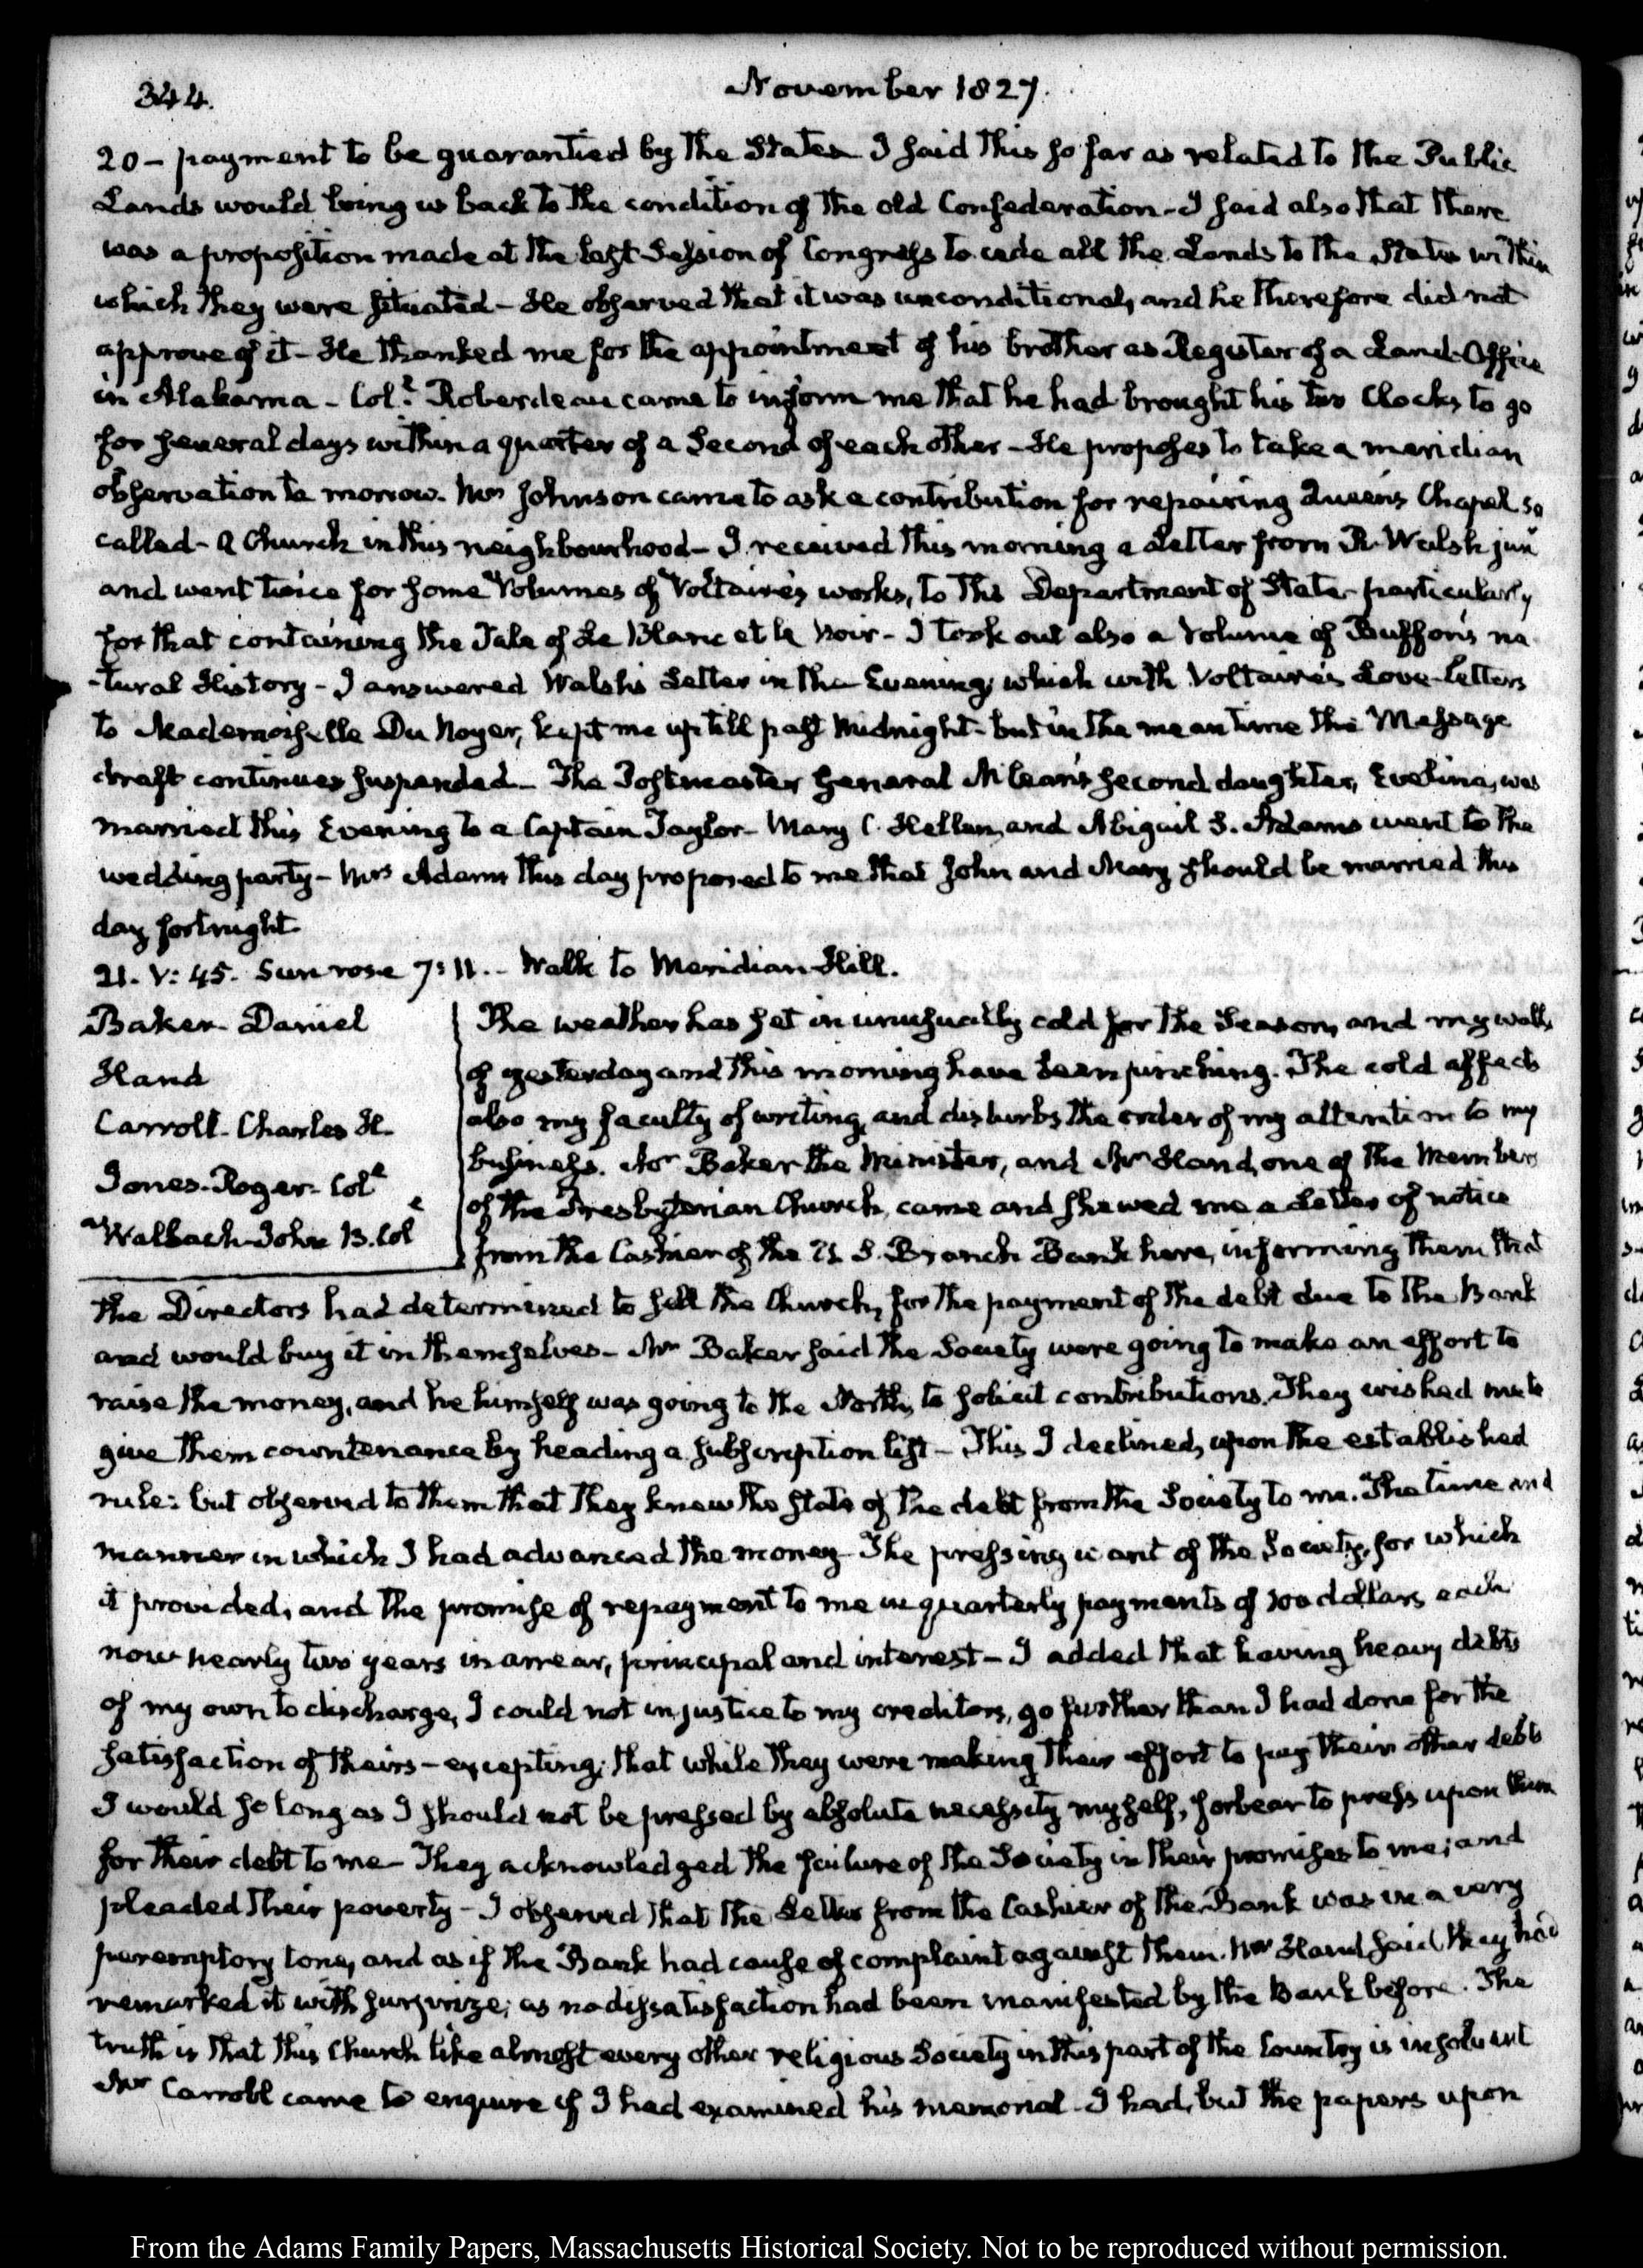 344.
November 1827.
20 - payment to be guarantied by the States I said this so far as related to the Public
Lands would bring us back to the condition of the old Confederation - I said also that there
was a proposition made at the last Session of Congress to cede all the Lands to the States within
which they were situated - He observed that it was unconditional, and he therefore did not
approve of it - He thanked me for the appointment of his brother as Register of a Land-Office
in Alabama - Coll. Roberdeau came to inform me that he had brought his two Clocks to go
for several days within a quarter of a Second of each other - He proposes to take a meridian
observation to morrow. Mrs Johnson came to ask a contribution for repairing Queen's Chapel so
called - a Church in this neighbourhood - I received this morning a Letter from R. Walsh junr
and went twice for some Volumes of Voltaire's works, to the Department of State - particularly
for that containing the Tale of Le Blanc et le Noir - I took out also a Volume of Buffon's na
-tural History - I answered Walsh's Letter in the Evening, which with Voltaire's Love-letters
to Mademoiselle Du Noyer, kept me up till past Midnight - but in the mean time the Message
draft continues suspended - The Postmaster General McLean's second daughter, Evelina, was
married this Evening to a Captain Taylor - Mary C. Hellen, and Abigail S. Adams went to the
wedding party - Mrs Adams this day proposed to me that John and Mary should be married this
day fortnight.
21. V: 45. Sun rose 7: 11. - Walk to Meridian Hill.
Baker - Daniel
Hand
Carroll - Charles H.
Jones - Roger - Coll
Walbach - John B. Coll
The weather has set in unusually cold for the Season, and my walks
of yesterday and this morning have been pinching. The cold affects
also my faculty of writing, and disturbs the order of my attention to my
business. Mr Baker the Minister, and Mr Hand, one of the Members
of the Presbyterian Church, came and shewed me a Letter of notice
from the Cashier of the U. S. Branch Bank here, informing them that
the Directors had determined to sell the Church, for the payment of the debt due to the Bank
and would buy it in themselves - Mr Baker said the Society were going to make an effort to
raise the money, and he himself was going to the North, to solicit contributions. They wished me to
give them countenance by heading a subscription list - This I declined, upon the established
rule: but observed to them that they knew the state of the debt from the Society to me. The time and
manner in which I had advanced the money - The pressing want of the Society, for which
it provided, and the promise of repayment to me in quarterly payments of 100 dollars each
now nearly two years in arrear, principal and interest - I added that having heavy debts
of my own to discharge, I could not in justice to my creditors, go further than I had done for the
satisfaction of theirs - excepting, that while they were making their effort to pay their other debts
I would so long as I should not be pressed by absolute necessity myself, forbear to press upon them
for their debt to me - They acknowledged the failure of the Society in their promises to me; and
pleaded their poverty - I observed that the Letter from the Cashier of the Bank was in a very
peremptory tone, and as if the Bank had cause of complaint against them. Mr Hand said they had
remarked it with surprize; as no dissatisfaction had been manifested by the Bank before. The
truth is that this Church like almost every other religious Society in this part of the Country is insolvent
Mr Carroll came to enquire if I had examined his memorial - I had, but the papers upon
From the Adams Family Papers, Massachusetts Historical Society. Not to be reproduced without permission.